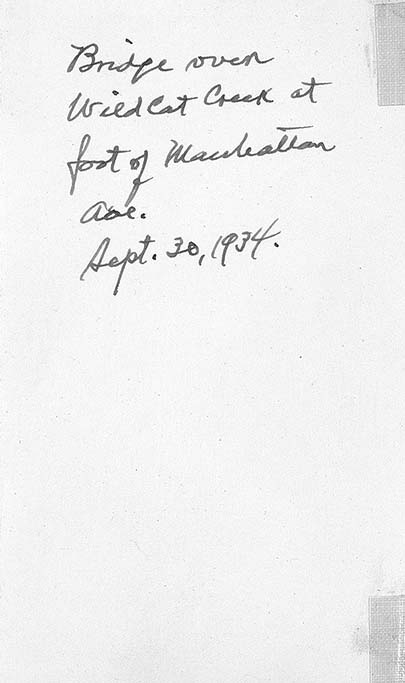 Bridge over
Wild Cat Creek at
foot of Manhattan
Ave.
Sept. 30, 1934.